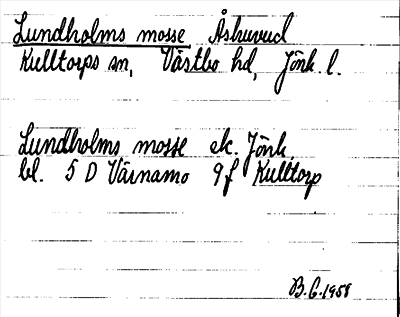 Lundholms mosse Åshuvud
Kulltorps sn, Västbo hd, Jönk. l.
Lundholms mosse ek. Jönk.
bl. 5 D Värnamo 9f Kulltorp
B.G. 1958